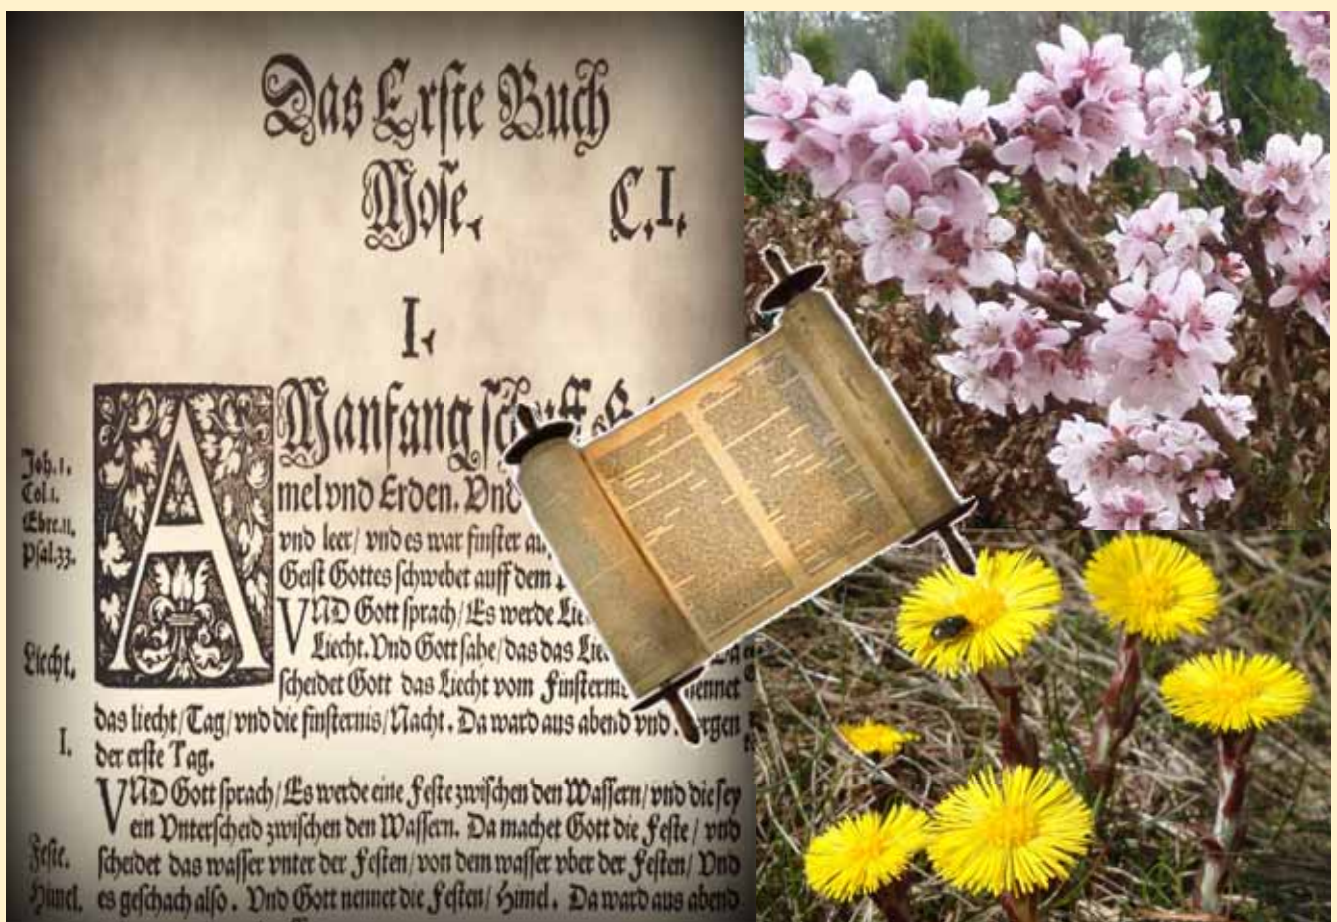 Das Erſte Buch
Moſe. C. I.
I.
AManfang ſchuff G
mel vnd Erden. Vnd
vnd leer / vnd es war finſter au
Geiſt Gottes ſchwebet auff dem
VND Gott ſprach / Es werde Lie
Liecht. Vnd Gott ſahe / das das Lie
ſcheidet Gott das Liecht vom Finſternis nennet
das liecht / Tag / vnd die finſternis / Nacht. Da ward aus abend vnd morgen
der erſte Tag.
VND Gott ſprach / Es werde eine Feſte zwiſchen den Waſſern / vnd die ſey
ein Vnterſcheid zwiſchen den Waſſern. Da machet Gott die Feſte / vnd
ſcheidet das waſſer vnter der Feſten / von dem waſſer vber der Feſten / Vnd
es geſchach alſo. Vnd Gott nennet die Feſten / Himel. Da ward aus abend
Joh. 1.
Col. 1.
Ebre. 11.
Pſal. 33.
Liecht.
I.
Feſte.
Himel.